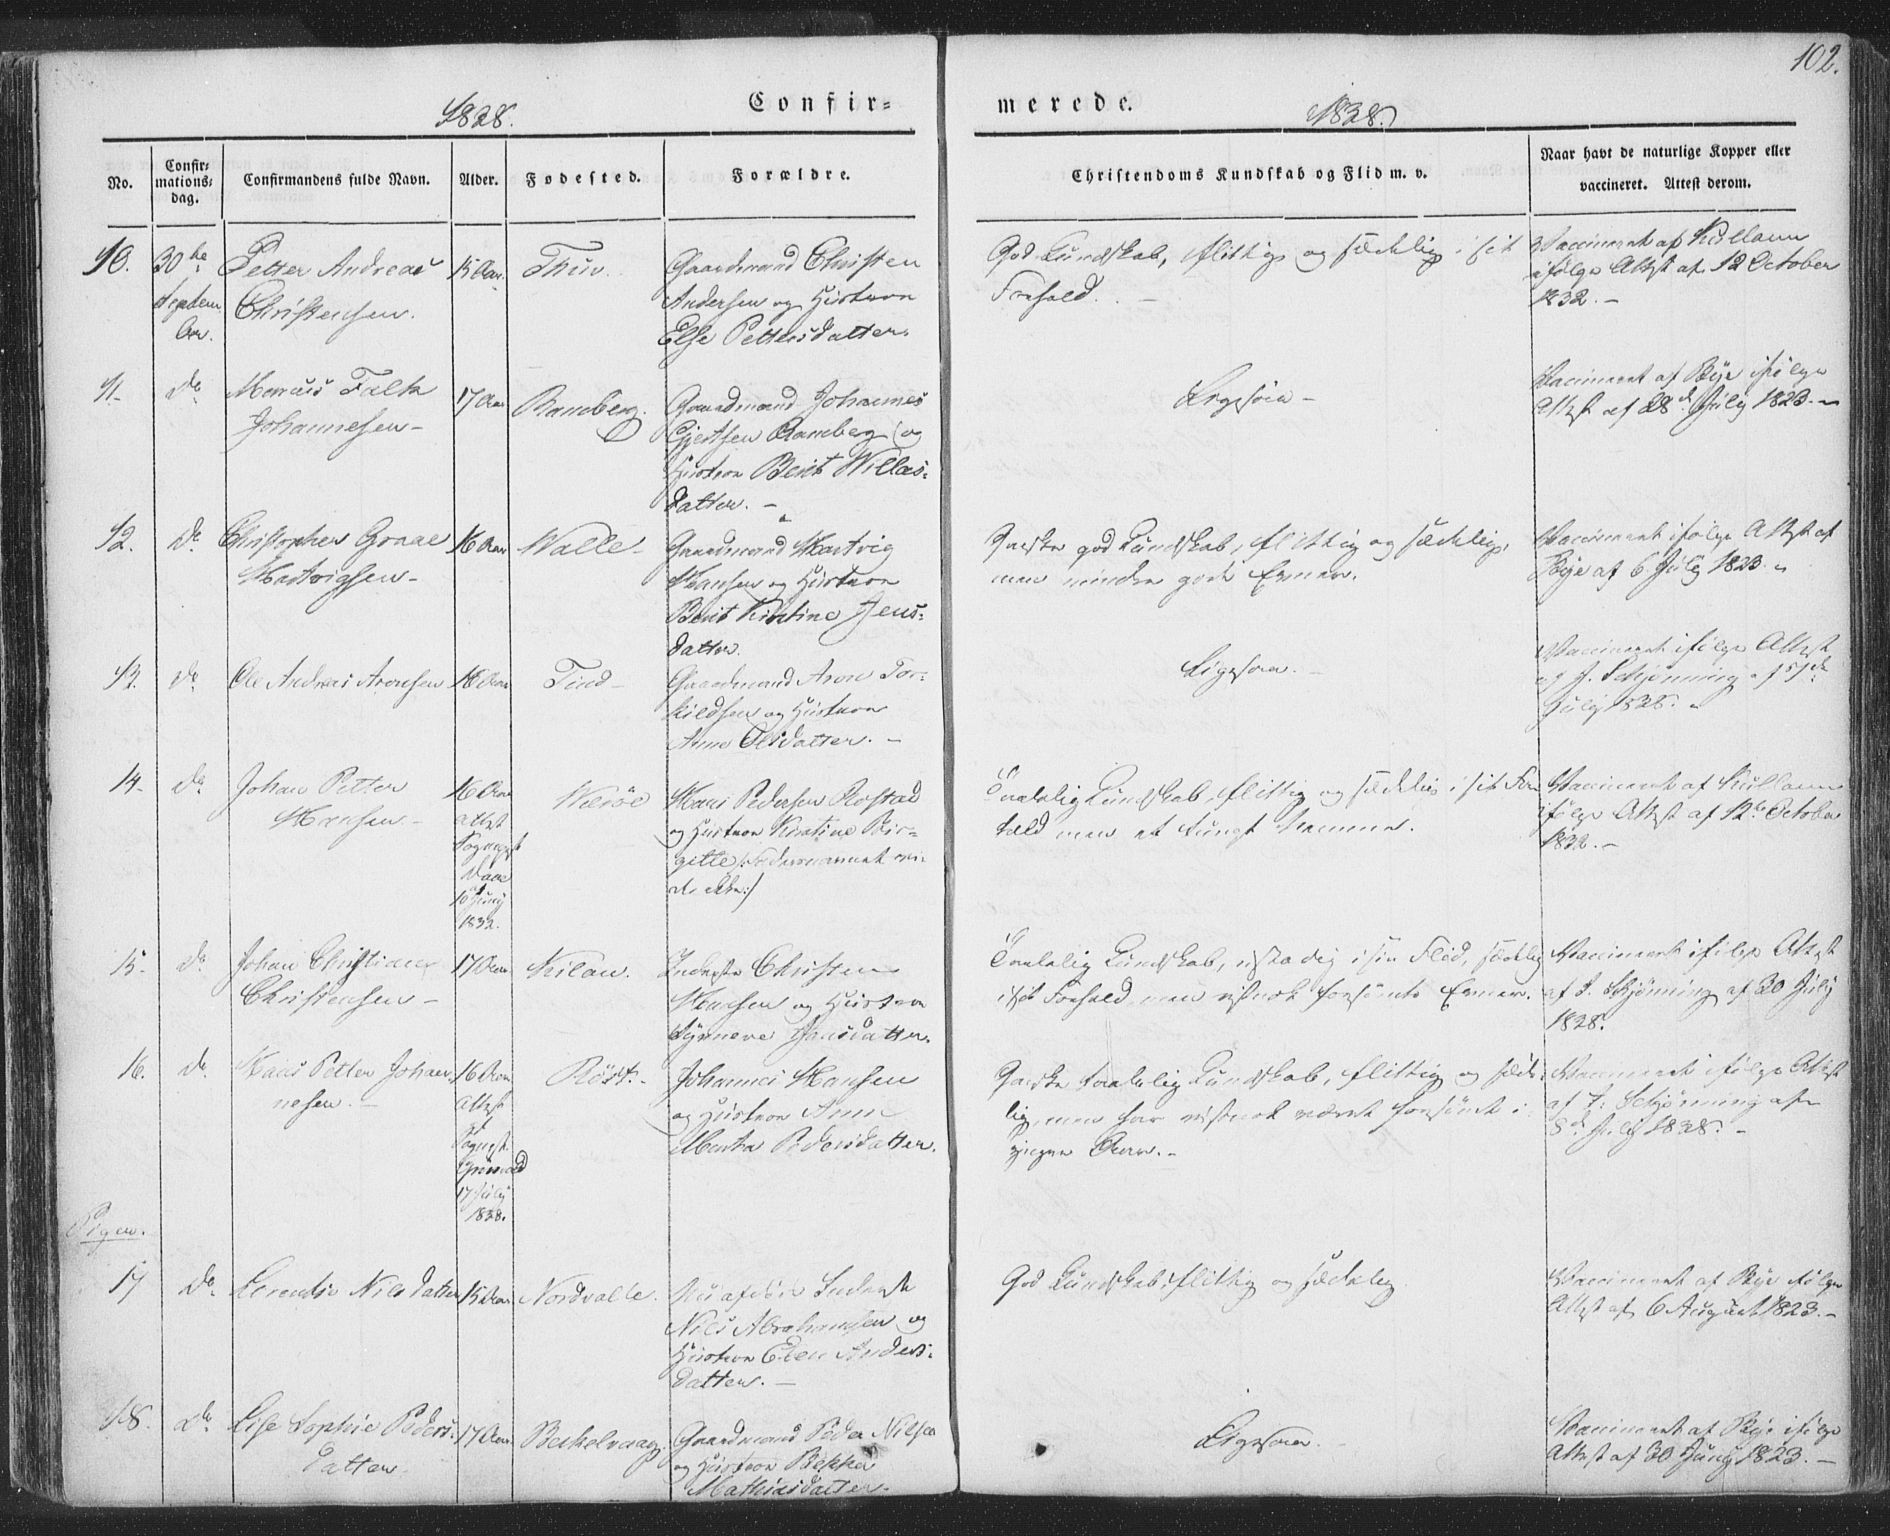 102.
1838. Confir= merede. 1838.
No. Confir= mations= dag. Confirmandens fulde Navn. Alder. Fødested. Forældre. Christendoms Kundskab og Flid m. v. Naar havt de naturlige Kopper eller vaccineret. Attest derom.
10. 30te Septem ber. Petter Andreas Christensen. 15 Aar. Gaardmand Christen Andersen og Hustrue Else Pettersdatter. God Kundskab, flittig og sædelig i sit Forhold. Vaccineret af ifølge Attest af 12 October 1832.
11. Do Marcus Falk Johannesen 17 Aar Ramberg. Gaardmand Johannes Gjertsen Ramberg og Hustrue Berit Willas= datter. Ligesaa Vaccineret af Bye ifølge Attest af 28d July 1823.
12. Do Christopher Graae Hartvigsen 16 Aar Walle Gaardmand Hartvig Hansen og Hustrue Berit Kirstine Jens= datter. Ganske god Kundskab, flittig og sædelig, men mindre gode Evner. Vaccineret ifølge Attest af Bye af 6 July 1823.
13. Do Ole Andreas Aronsen 16 Aar Tind Gaardmand Aron Tor= kildsen og Hustrue Anne Olsdatter. Ligesaa. Vaccineret ifølge Attest af J. Schjønning af July 1828.
14. Do Johan Petter Hansen 16 Aar attest Sogneprst Daae af 10 Juny 1832. Werøe Hans Pedersen Rostad og Hustrue Kirstine Bir= gitte (: Fadernavnet vi= des ikke:) Taalelig Kundskab, flittig og sædelig i sit For hold men et tungt Nemme. Vaccineret af ifølge Attest af 12te October 1832.
15. Do Johan Christian Christensen 17 Aar Inderste Christen Hansen og Hustrue Synneve Hansdatter. Taalelig Kundskab, i sin Flid, sædelig i sit Forhold, men vistnok forsømte Evner. Vaccineret ifølge Attest af J. Schjønning af 30 July 1828.
16. Do Hans Petter Johan= nesen. 16 Aar Attest af Sognepst. 17 July 1838. Røst. Johannes Hansen og Hustrue Anne Martha Pedersdatter. Ganske taalelig Kundskab, flittig og sæde= lig, men har vistnok været forsømt i yngre Aar. Vaccineret ifølge Attest af J. Schjønning af 8d July 1838.
Pigen.
17 Do Lerentse Nilsdatter 15 Aar Nordvalle. Inderste Nils Abrahamsen og Hustrue Elen Anders= datter. God Kundskab, flittig og sædelig. Vaccineret af Bye ifølge Attest af 6 August 1823.
18. Do Lise Sophie Peders= datter. 17 Aar. Beskelvaag. Gaardmand Peder Nilsen og Hustrue Mathiasdatter. Ligesaa. Vaccineret af Bye ifølge Attest af 30 Juny 1823.